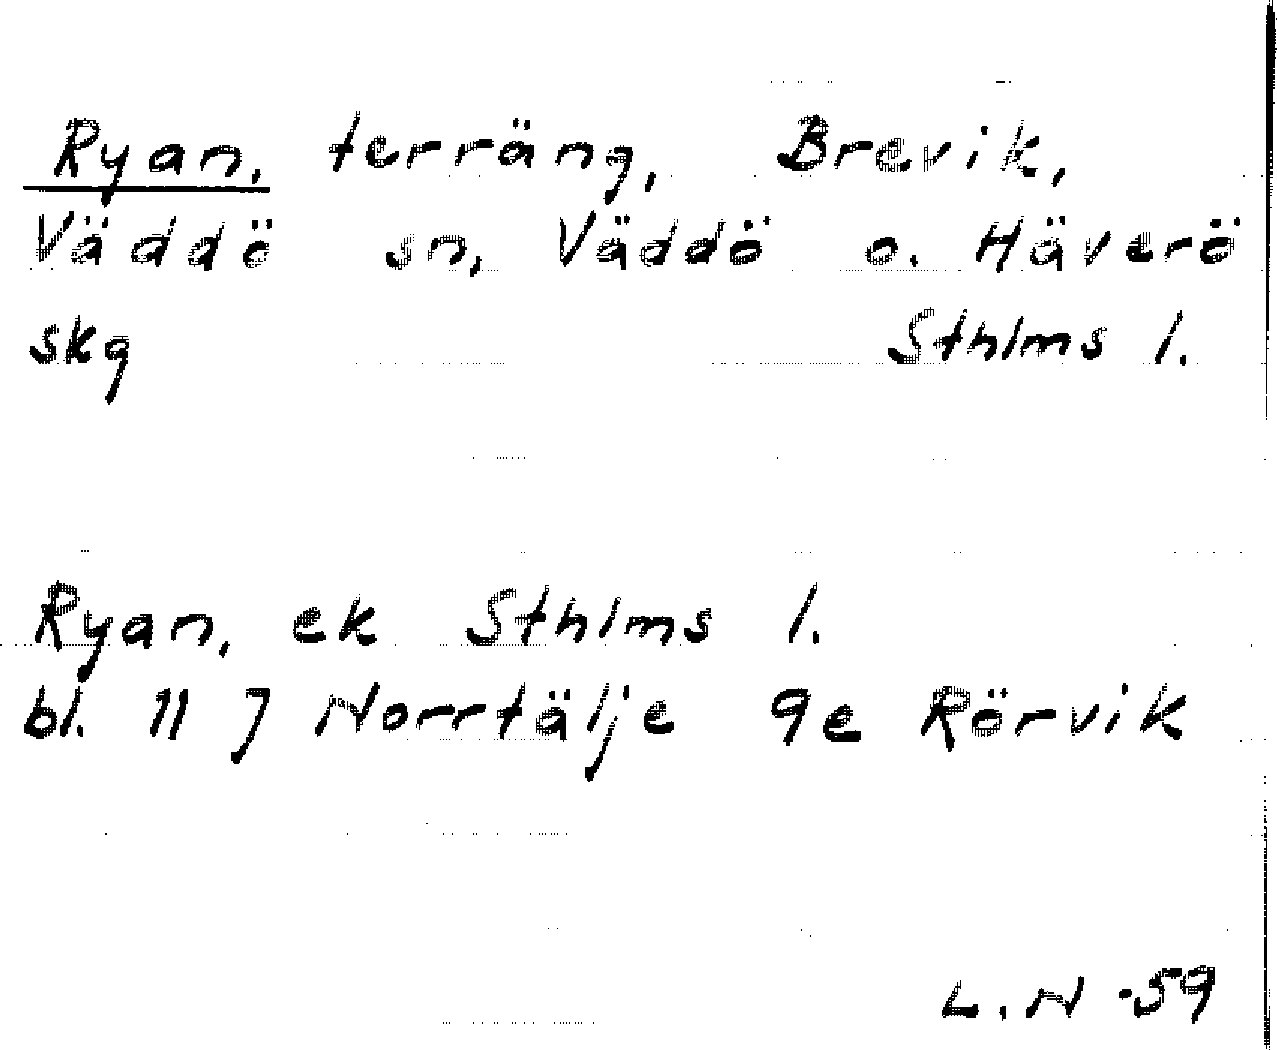 Ryan, terräng, Brevik,
Väddö sn, Väddö o. Häverö
skg Sthlms l.
Ryan, ek Sthlms l.
bl. 11 J Norrtälje 9e Rörvik
L. N -59